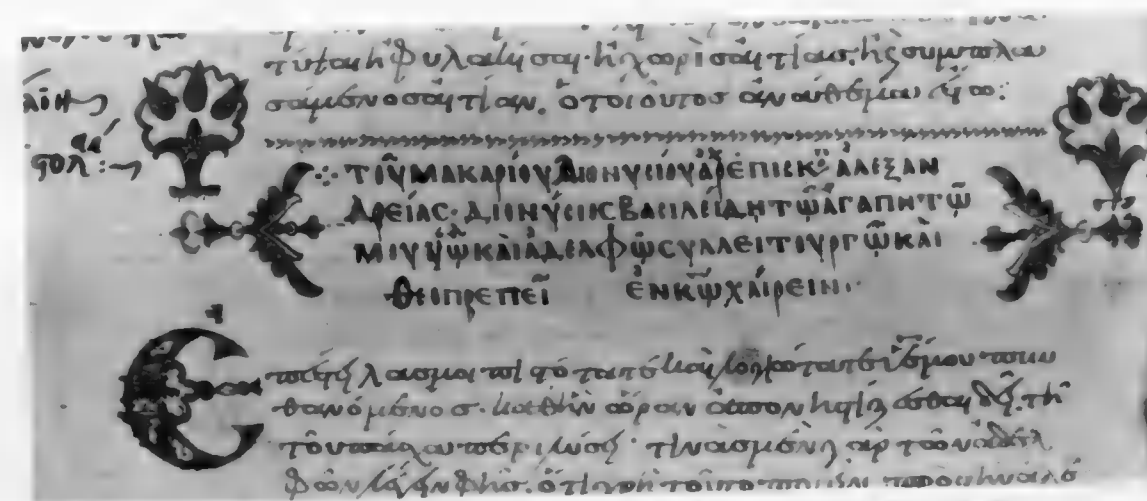 τύψαι ἢ φυλακίσαι ἢ χωρὶς αἰτίας. ἢ συμπλα
σάμενος αἰτίαν. ὁ τοιοῦτος ἀνάθεμα ἔστω:
ΤΟῦ ΜΑΚΑΡΊΟΥ ΔΙΟΝΥΣΊΟΥ ἈΡΧ ἘΠΙΣΚΟ ἈΛΕΞΑΝ
ΔΡΕΊΑΣ· ΔΙΟΝΎΣΙΟΣ ΒΑΣΙΛΕΊΔΗ ΤΩ͂ ἈΓΑΠΗΤΩ͂
ΜΟΥ ΥἹΩ͂ ΚΑῚ ἈΔΕΛΦΩ͂ ΣΥΛΛΕΙΤΟΥΡΓΩ͂ ΚΑῚ
ΘΕΟΠΡΕΠΕΙ͂ ἘΝ ΚΩ͂ ΧΑΊΡΕΙΝ:
Ἐπέστειλάς μοι πιστότατε καὶ λογιώτατε υἱέ μου πυν
θανόμενος· καθ' ἣν ὥραν ἀπονηστίζεσθαι δεῖ. τῇ
τοῦ πάσχα περιλύσει· τινὰς μὲν γὰρ τῶν ἀδελ
φῶν λέγειν φῂς. ὅτι χρὴ τοῦτο ποιεῖν